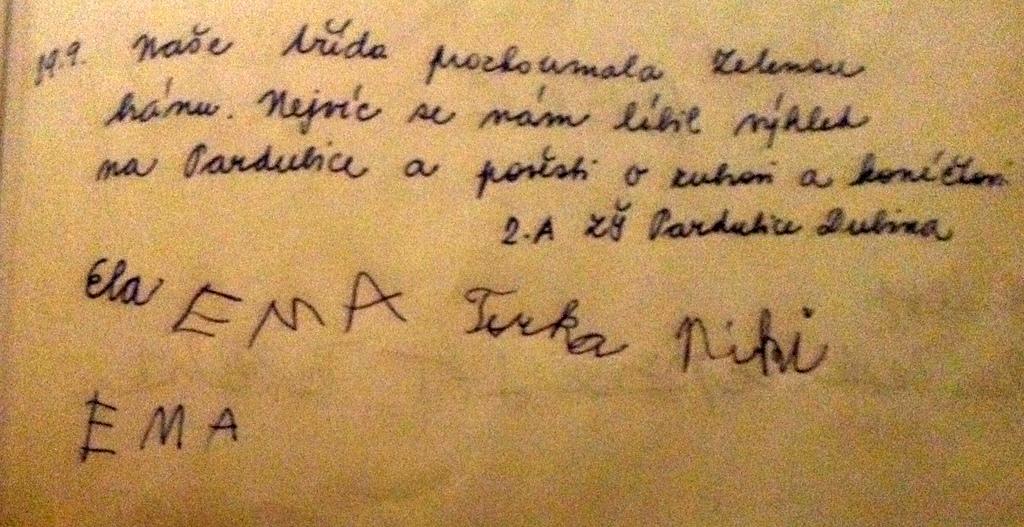 19.9. Naše třída prozkoumala Zelenou
bránu. Nejvíc se nám líbil výhled
na Pardubice a pověsti o zubovi a koníčkovi
2.A ZŠ Pardubice Dubina
Ela EMA Terka Niki
EMA